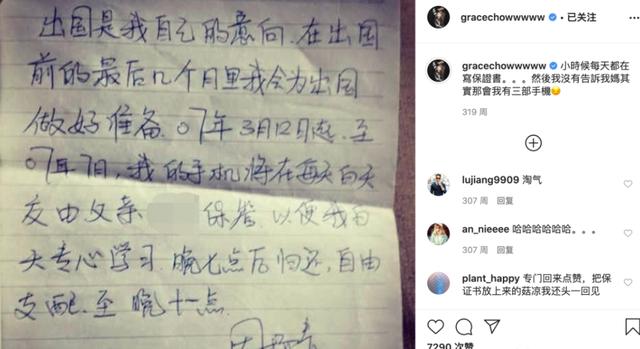 出国是我自己的意向.在出国
前的最后几个月里我会为出国
做好准备.07年3月12日起.至
07年7月,我的手机将在每天白天
交由父亲 保管.以便我白
天专心学习.晚七点后归还,自由
支配.至 晚十一点.
周
gracechowwwww · 已关注
gracechowwwww 小時候每天都在
寫保證書。。。然後我沒有告訴我媽其
實那會我有三部手機😏
319 周
lujiang9909 淘气
307 周 回复
an_nieeee 哈哈哈哈哈哈。。。
307 周 回复
plant_happy 专门回来点赞,把保
证书放上来的菇凉我还头一回见
7290 次赞